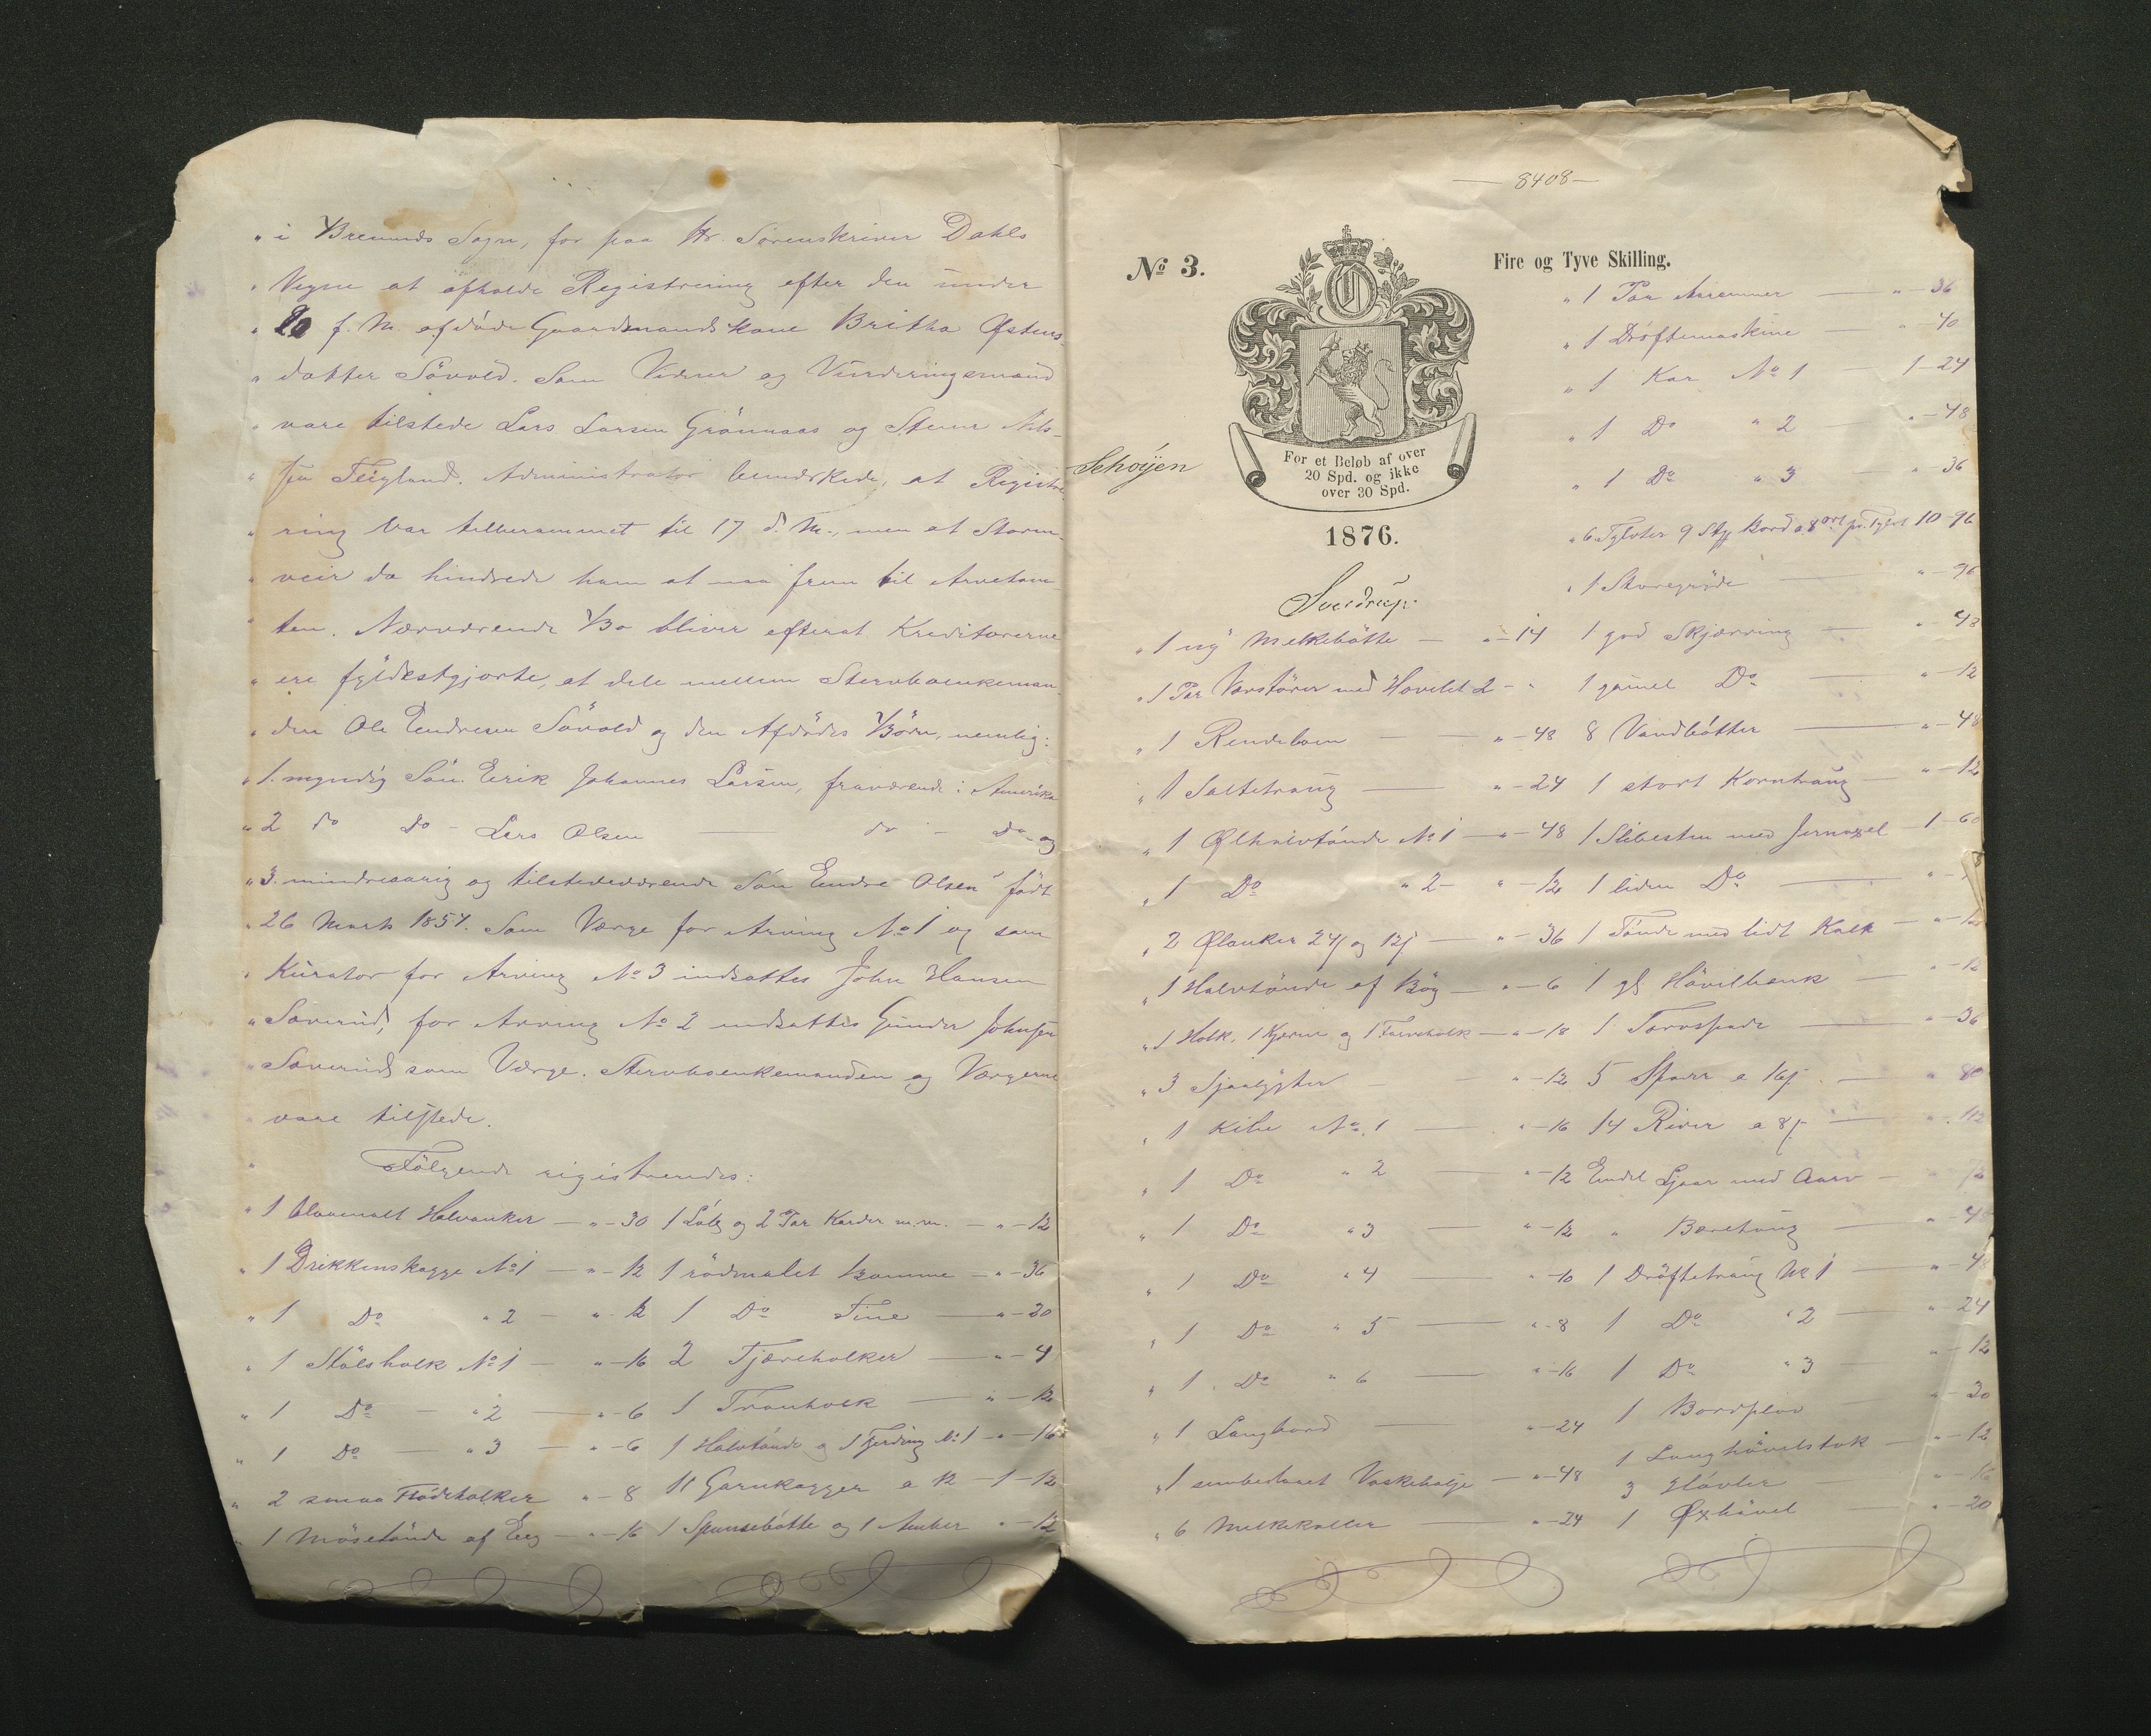 " i Bremnes Sogn, for paa Hr. Sorenskriver Dahls
" Vegne at afholde Registrering efter den under
" 20 f. M. afdøde Gaardmandskone Britha Østens-
" datter Søvold. Som Vidner og Vurderingsmænd
" vare tilstede Lars Larsen Grønnaas og Stener Nils-
" sen Teigland. Administrator bemærkede, at Registre
" ring var tilberammet til 17 d. M., men at Storm-
" veir da hindrede ham at naa frem til Arvetom
" ten. Nærværende Bo bliver efterat Kreditorerne
" ere fyldestgjorte, at dele mellem Stervboenkeman
" den Ole Endresen Søvold og den Afdødes Børn, nemlig:
" 1. myndig Søn Eerik Johannes Larsen, fraværende i Amerika
" 2 do do - Lars Olsen do - do - og
" 3. mindreaarig og tilstedeværende Søn Endre Olsen født
" 26 Marts 1857. Som Værge for Arving No 1 og som
" Kurator for Arving No 3 indsattes John Hansen
" Søverud, for Arving No 2 indsattes Gunder Johnsen
" Søverud som Værge. Stervboenkemanden og Værgerne
" vare tilstede.
" Følgende registreredes:
" 1 blaamalt Halvanker — " - 30
" 1 Drikkenskagge No 1 — " - 12
" 1 Do " 2 — " - 12
" 1 Stølsholk No 1 — " - 16
" 1 Do — " 2 — " - 6
" 1 Do — " 3 — " - 6
" 2 smaa Flødeholker " - 8
" 1 Møsetønde af Eeg — " - 16
1 Løb og 2 Par Karder m.m. — " - 12
1 rødmalet Bomme — " - 36
1 Do Tine — " - 20
2 Tjæreholker — " - 4
1 Tranholk — " - 12
1 Halvtønde og 1 Fjerding No 1 — " - 16
11 Garnkagger a 12 - 1 - 12
1 Spunsebøtte og 1 Ambar " - 12
— 8408 —
No 3.
Fire og Tyve Skilling.
Schøyen
For et Beløb af over
20 Spd. og ikke
over 30 Spd.
1876.
Sverdrup.
" 1 ny Melkebøtte — " - 14
" 1 Par Vævstøer med Hovelet 2 - "
" 1 Rendebom — " - 48
" 1 Saltetraug — " - 24
" 1 Ølhalvtønde No 1 — " - 48
" 1 Do " 2 - " - 12
" 2 Ølanker 24 og 12 — " - 36
" 1 Halvtønde af Bøg — " - 6
" 1 Holk, 1 Kjerne og 1 Farveholk — " - 18
" 3 — " - 12
" 1 Kibe No 1 — " - 16
" 1 Do " 2 — " - 12
" 1 Do " 3 — " - 12
" 1 Do " 4 — " - 10
" 1 Do " 5 — " - 8
" 1 Do " 6 — " - 16
" 1 Langbord — " - 24
" 1 Vaskebalje — " - 48
" 6 Melkekoller — " - 24
" 1 Par — " - 36
" 1 Drøftemaskine — " - 40
" 1 Kar No 1 — 1 - 24
" 1 Do " 2 — " - 48
" 1 Do " 3 — " - 36
" 6 Tylvter 9 Stk Bord a 8 ort pr. Tylvt 10 - 96
" 1 — " - 96
1 god Skjæring — " - 48
1 gamel Do — " - 12
8 Vandbøtter — " - 48
1 stort Korntraug — " - 12
1 Slibesten med Jernaxel - 1 - 60
1 liden Do —
1 Tønde med lidt Kalk — " - 12
1 gl Høvilbænk — " - 12
1 Torvspade — " - 36
5 Sparr a 16 — " 80
14 River a 8 — " 112
Endel Ljaar med Aarv —
" Bæretøug —
1 Drøftetraug No 1 —
1 Do " 2 — " - 24
1 Do " 3 — " - 12
1 Bordplov — " - 30
1 Langhøvelstok — " - 12
3 Høvler — " - 16
1 Øxhøvel — " - 20